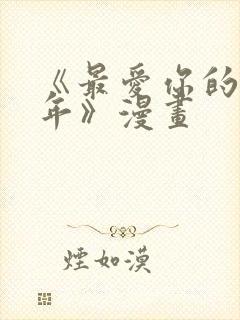 《最愛你的
年》漫畫
煙如漠